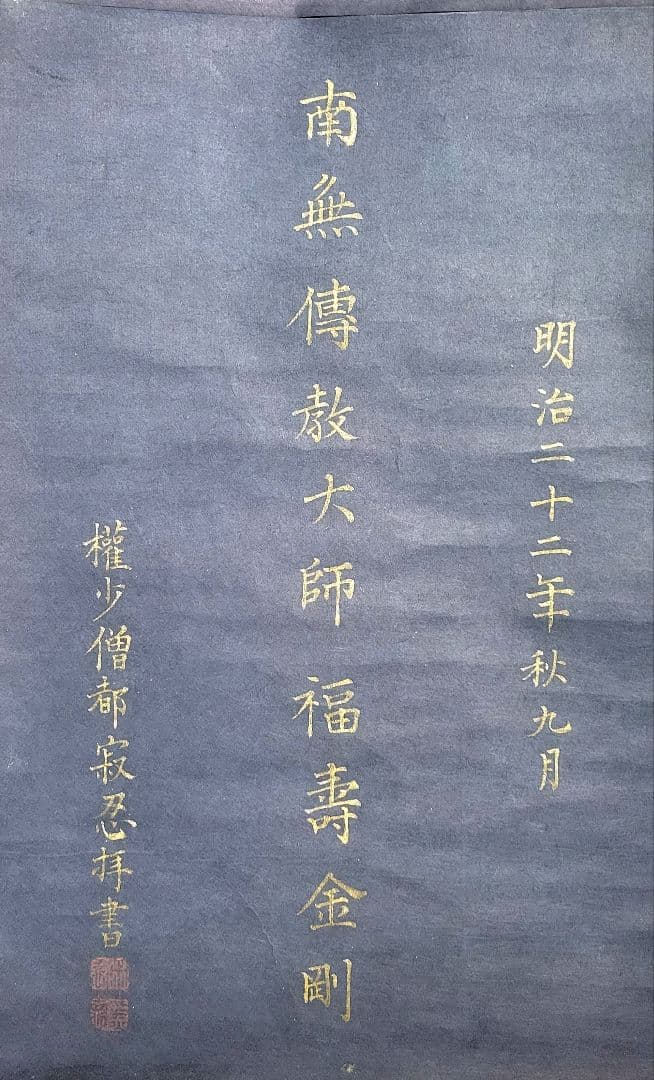 明治二十二年秋九月
南無傳教大師福壽金剛
權少僧都寂忍拝書